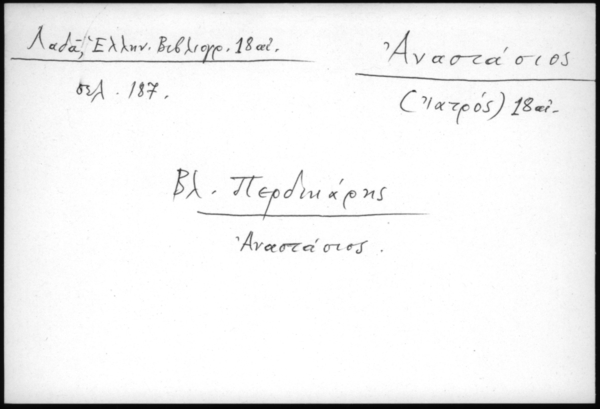 Λαδᾶ, Ἑλλην. Βιβλιογρ. 18 αἰ.
σελ. 187.
Ἀναστάσιος
(Ἰατρός) 18 αἰ.
Βλ. Περδικάρης
Ἀναστάσιος.